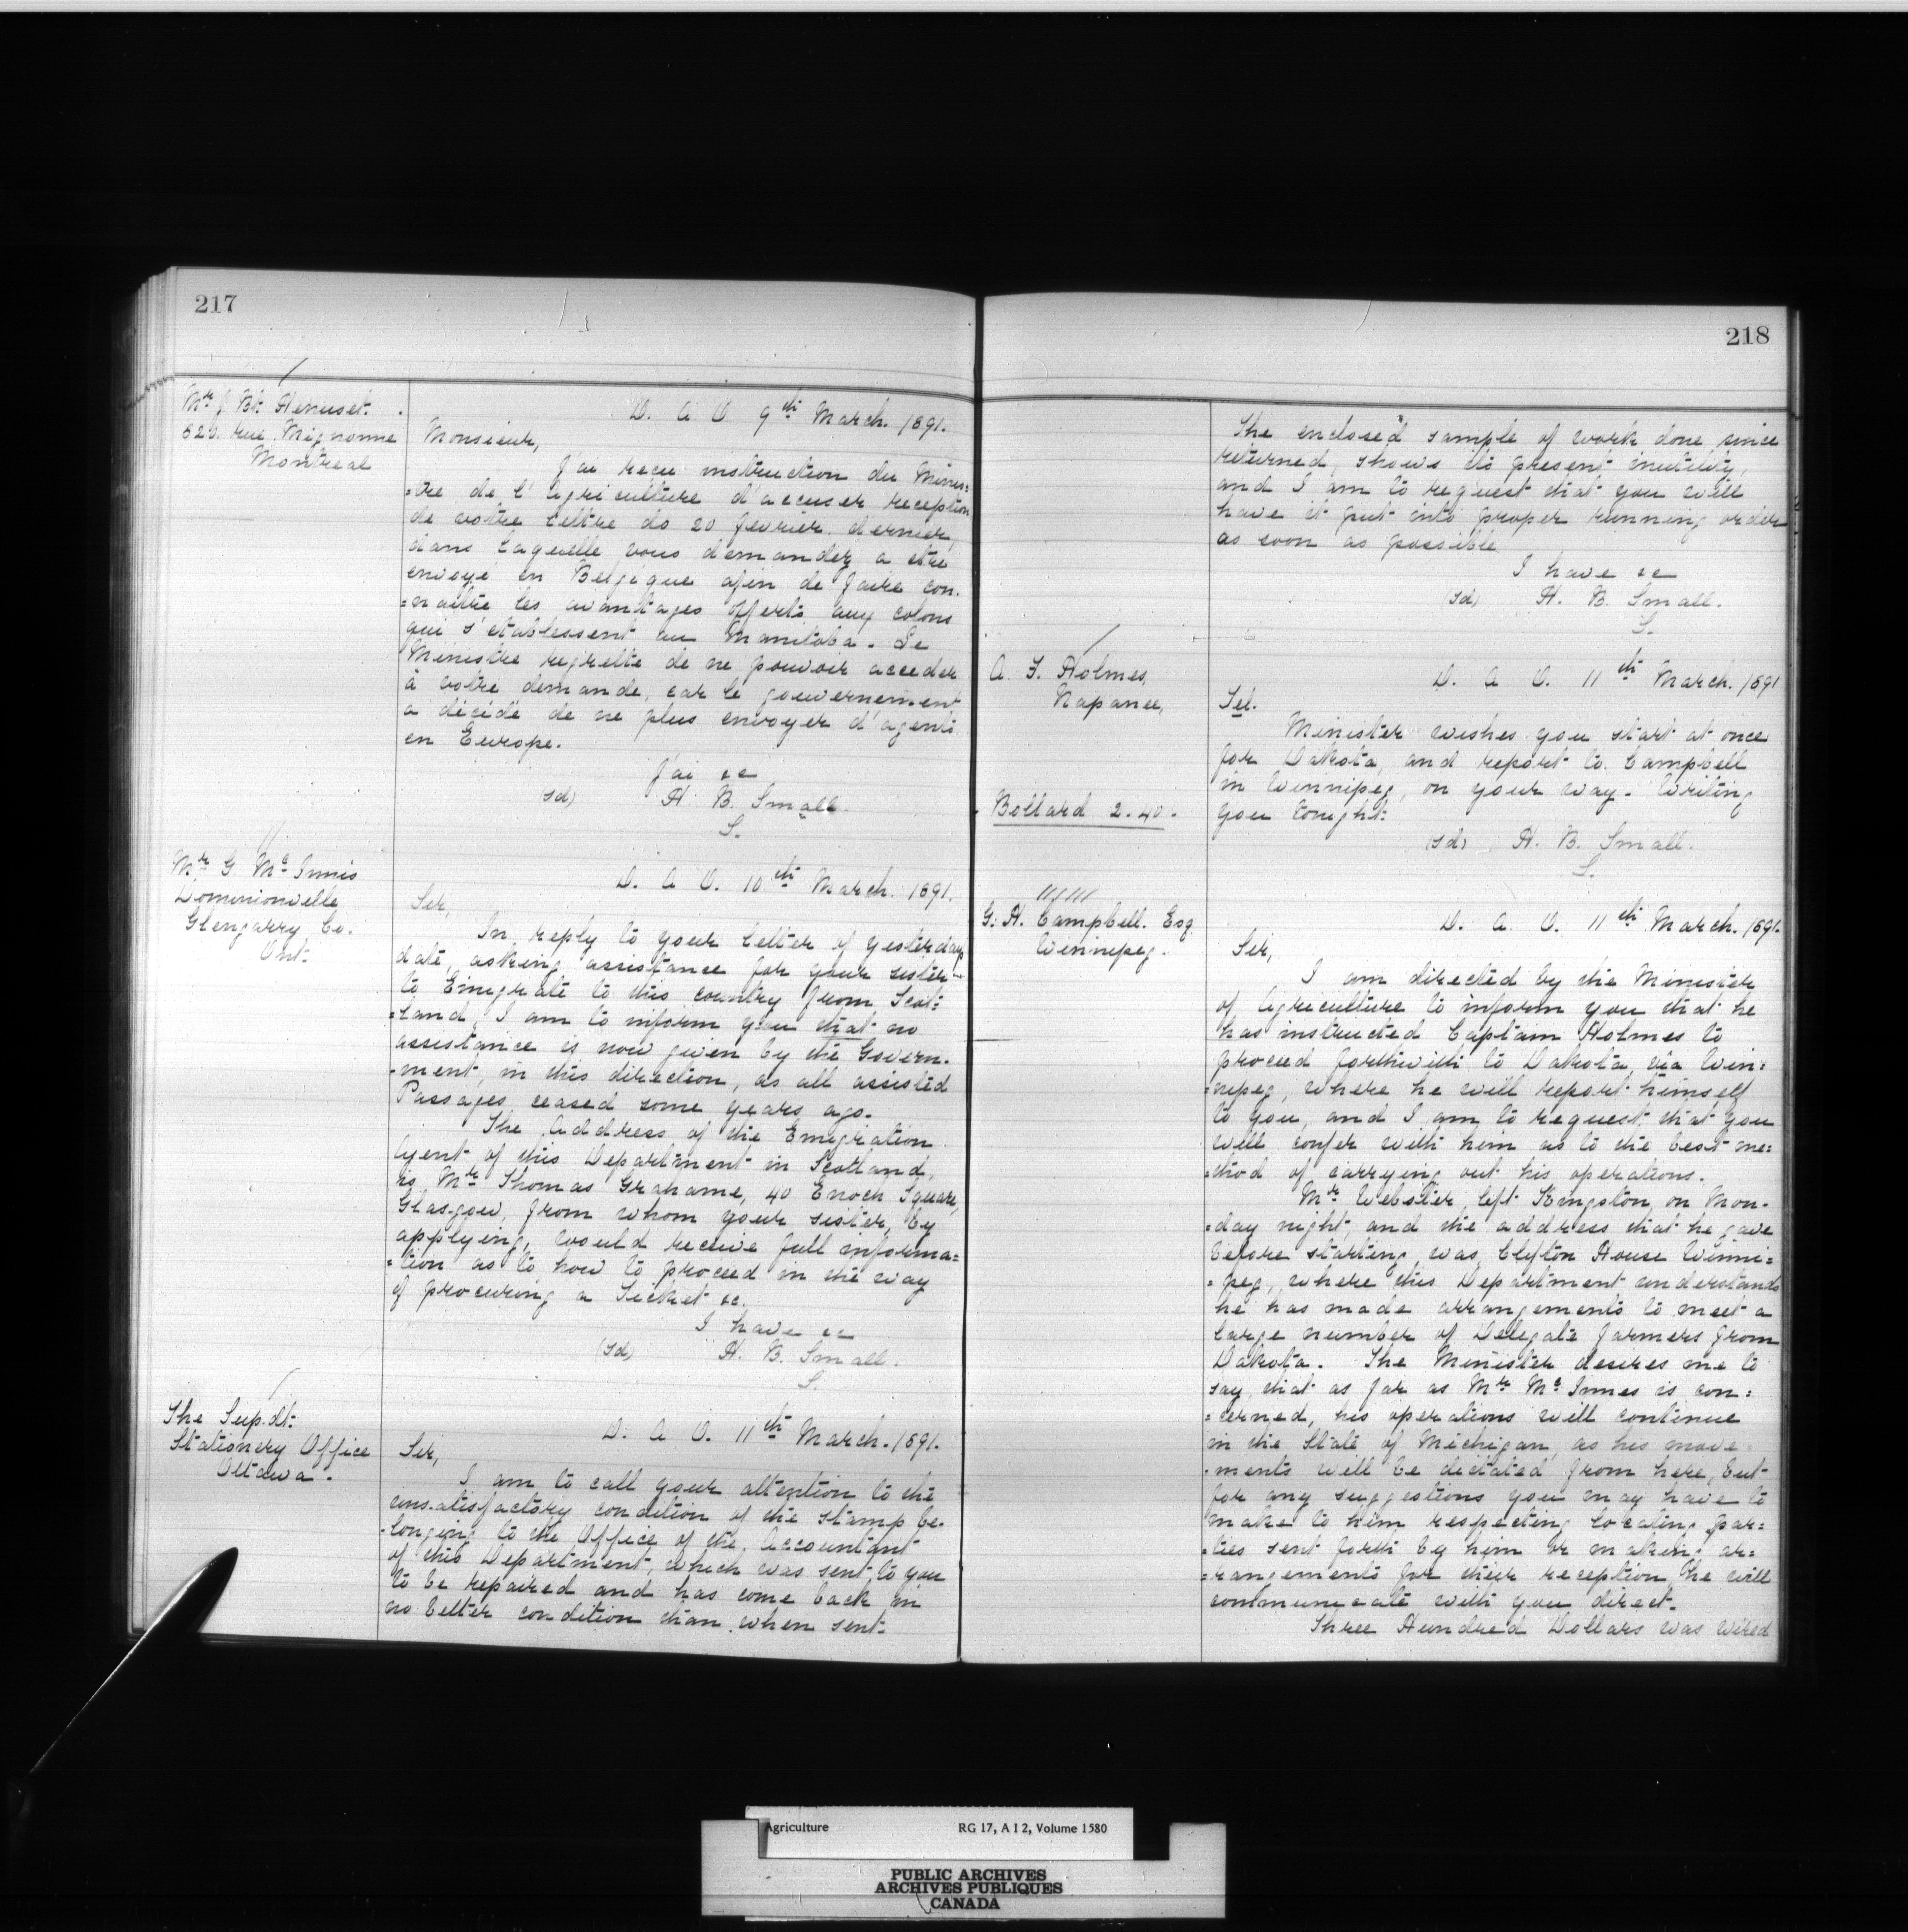 217
Mr J Bt. Henuset.
620. rue Mignonne
Montreal
D. A O 9th March. 1891.
Monsieur,
J'ai recu instruction du Minis=
=tre de l'Agriculture d'accuser reception
de votre lettre do 20 fevrier dernier,
dans laquelle vous demandez a etre
envoyé en Belgique afin de faire con.
=naitre les avantages offerts aux colons
qui s'etablessent au Manitoba. Le
Ministre regrette de ne pouvoir acceder
à votre demande, car le gouvernement
a décidé de ne plus envoyer d'agents
en Europe.
J'ai &c
(sd) H. B. Small.
S.
Mr G. Mc Innis
Dominionville
Glengarry Co.
Ont.
D. A O. 10th March. 1891.
Sir,
In reply to your letter of yesterdays
date, asking assistance for your sister
to Emigrate to this country from Scot=
=land, I am to inform you that no
assistance is now given by the Govern.
-ment, in this direction, as all assisted
Passages ceased some years ago.
The Address of the Emigration
Agent of this Department in Scotland,
is Mr Thomas Grahame, 40 Enoch Square,
Glasgow, from whom your sister, by
applying, would receive full informa=
=tion as to how to proceed in the way
of procuring a Ticket &c.
I have &c
(sd) H. B. Small.
S.
The Sup.dt.
Stationery Office
Ottawa.
D. A. O. 11th March. 1891.
Sir,
I am to call your attention to the
unsatisfactory condition of the stamp be-
-longing to the Office of the Accountant
of this Department, which was sent to you
to be repaired and has come back in
no better condition than when sent.
218
The enclosed sample of work done since
returned, shows its present inutility,
and I am to request that you will
have it put into proper running order
as soon as possible.
I have &c
(sd) H. B. Small.
S.
A. F. Holmes,
Napanee,
D. A O. 11th March. 1891
Tel.
Minister wishes you start at once
for Dakota, and report to Campbell
in Winnipeg, on your way. Writing
you tonight.
Bollard 2.40.
(sd) H. B. Small.
S.
G. H. Campbell. Esq
Winnipeg.
D. A. O. 11th March. 1891.
Sir,
I am directed by the Minister
of Agriculture to inform you that he
has instructed Captain Holmes to
proceed forthwith to Dakota, via Win=
=nipeg, where he will report himself
to you, and I am to request that you
will confer with him as to the best me=
=thod of carrying out his operations.
Mr Webster left Kingston, on Mon-
=day night, and the address that he gave
before starting, was, Clifton House Winni=
=peg, where this Department understands
he has made arrangements to meet a
large number of Delegate farmers from
Dakota. The Minister desires me to
say, that as far as Mr Mc Innes is con=
=cerned, his operations will continue
in the State of Michigan, as his move-
-ments will be dictated from here, but
for any suggestions you may have to
make to him respecting locating par=
=ties sent forth by him or making ar=
=rangements for their reception he will
communicate with you direct.
Three Hundred Dollars was wired
Agriculture RG 17, A I 2, Volume 1580
PUBLIC ARCHIVES
ARCHIVES PUBLIQUES
CANADA